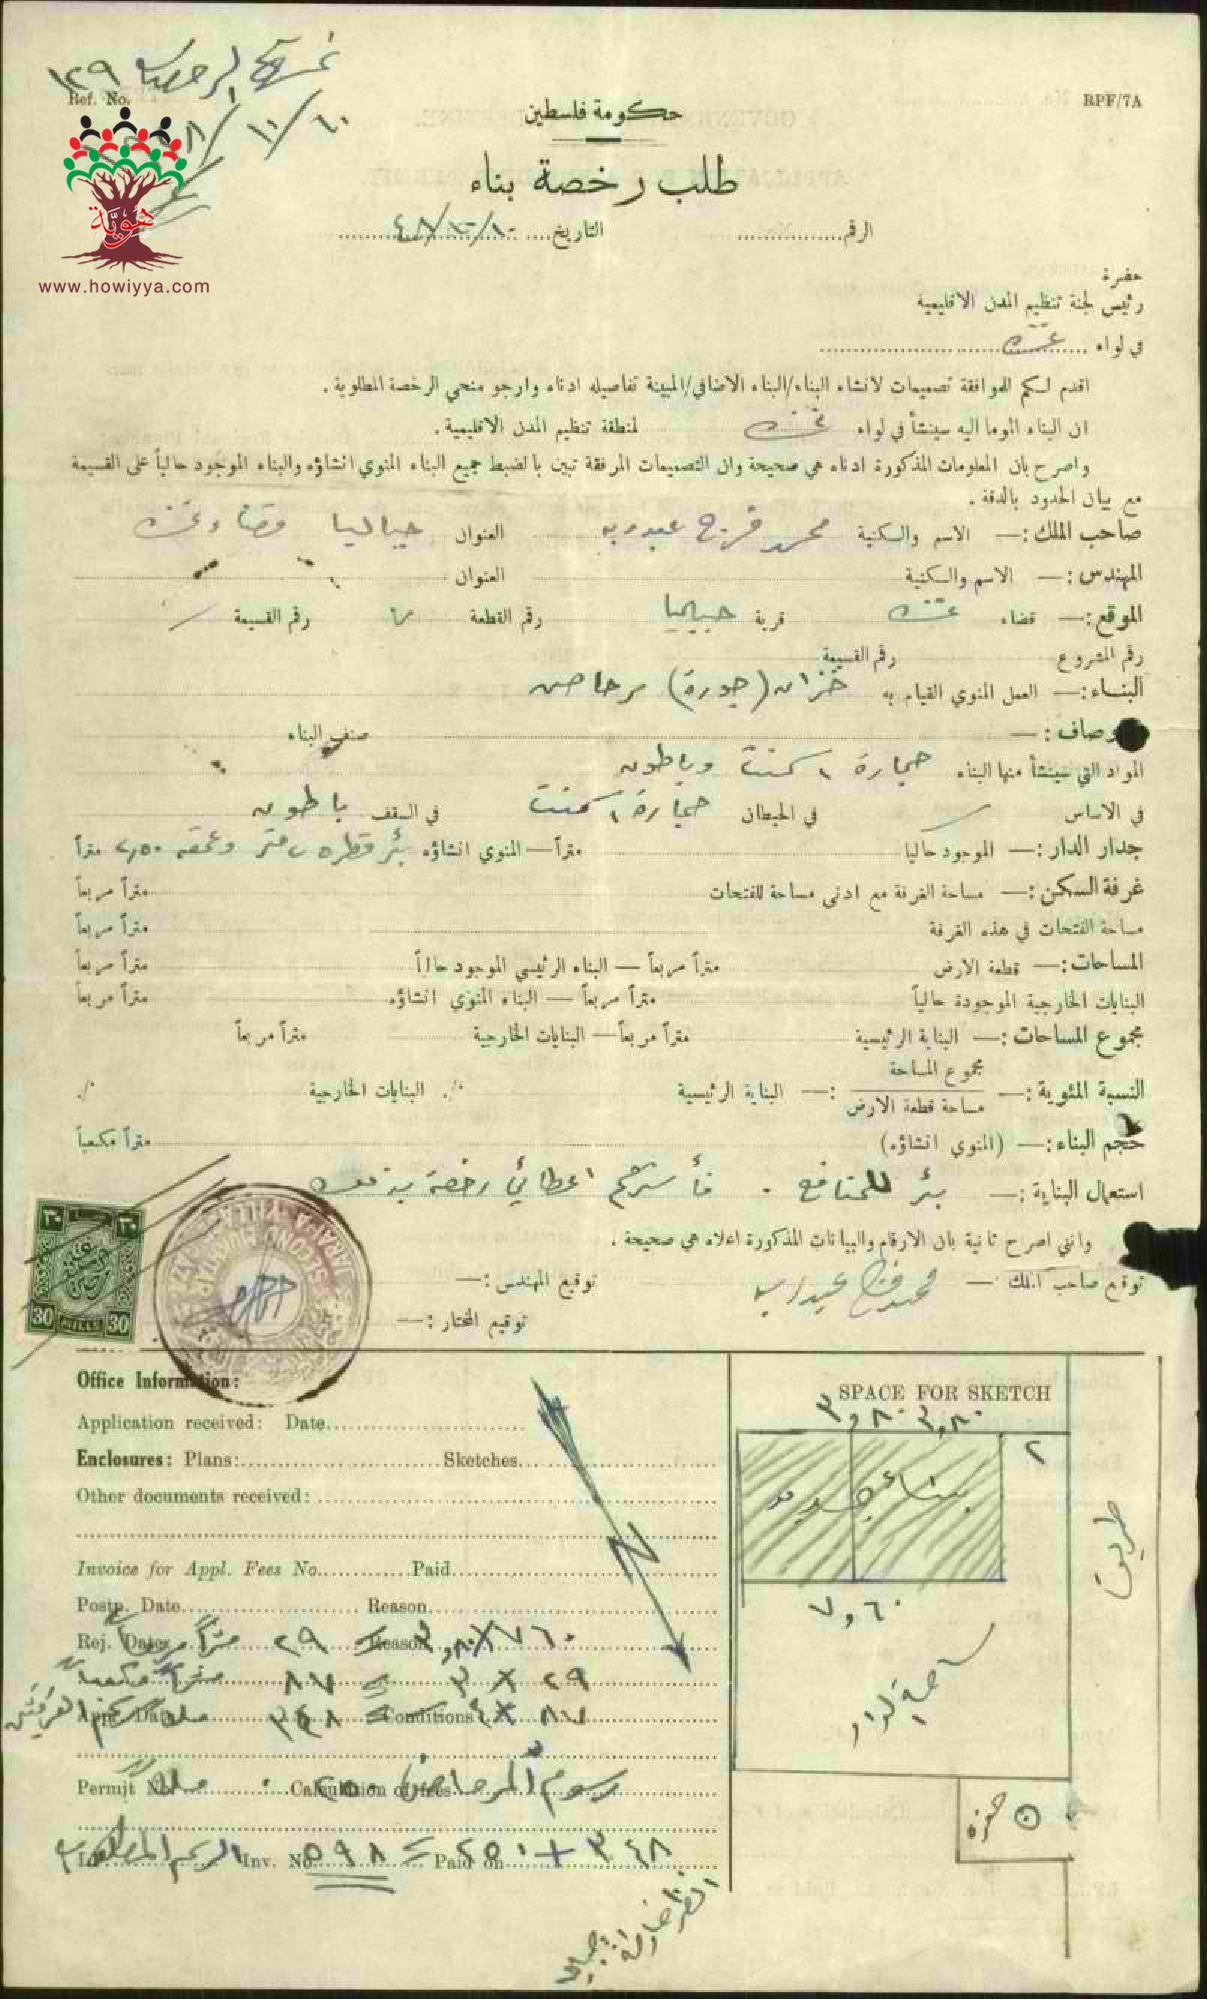 نمرة الرخصة ١٢٩
Ref. No.
RPF/7A
حكومة فلسطين
طلب رخصة بناء
هوية
www.howiyya.com
الرقم.............. التاريخ.... ١٠/١٠/٤٨
حضرة
رئيس لجنة تنظيم المدن الاقليمية
في لواء غزه
اقدم لكم للموافقة تصميمات لانشاء البناء/البناء الاضافي/المبينة تفاصيله ادناه وارجو منحي الرخصة المطلوبة .
ان البناء الموما اليه سينشأ في لواء غزه لمنطقة تنظيم المدن الاقليمية .
واصرح بان المعلومات المذكورة ادناه هي صحيحة وان التصميمات المرفقة تبين بالضبط جميع البناء المنوي انشاؤه والبناء الموجود حالياً على القسيمة
مع بيان الحدود بالدقة .
صاحب الملك :— الاسم والكنية محمد فرج عبدربه العنوان جباليا قضاء غزه
المهندس :— الاسم والكنية العنوان
الموقع :— قضاء غزه قرية جباليا رقم القطعة رقم القسيمة
رقم المشروع رقم القسيمة
البناء :— العمل المنوي القيام به خزان (جورة) مرحاض
وصاف :— صنف البناء
المواد التي سينشأ منها البناء حجارة ، كمنت وباطون
في الاساس في الحيطان حجارة ، كمنت في السقف باطون
جدار الدار :— الموجود حاليا متراً — المنوي انشاؤه بئر قطره متر وعمقه متراً
غرفة السكن :— مساحة الغرفة مع ادنى مساحة للفتحات متراً مربعاً
مساحة الفتحات في هذه الغرفة متراً مربعاً
المساحات :— قطعة الارض متراً مربعاً — البناء الرئيسي الموجود حالاً متراً مربعاً
البنايات الخارجية الموجودة حالياً متراً مربعاً — البناء المنوي انشاؤه متراً مربعاً
مجموع المساحات :— البناية الرئيسية متراً مربعاً — البنايات الخارجية متراً مربعاً
النسبة المئوية :— مجموع المساحة / مساحة قطعة الارض :— البناية الرئيسية ٪ البنايات الخارجية ٪
حجم البناء :— (المنوي انشاؤه) متراً مكعباً
استعمال البناية :— بئر للمنافع . فأسترحم اعطائي رخصة بذلك
وانني اصرح ثانية بان الارقام والبيانات المذكورة اعلاه هي صحيحة .
توقيع صاحب الملك — محمد فرج عبدربه توقيع المهندس :—
توقيع المختار :—
٣٠ ٣٠
30 MILLS 30
Office Information:
Application received: Date
Enclosures: Plans: Sketches
Other documents received:
Invoice for Appl. Fees No. Paid
Postp. Date Reason
Rej. Date Reason
٧٦٠ × ٣,٨٠ = ٢٩ متراً مربعاً
٢٩ × ٣ = ٨٧ متراً مكعباً
Appr. Date Conditions
٨٧ × ٤ = ٣٤٨ ملاً رسم الغرفتين
Permit No. Calculation of fees
رسوم المرحاض ٢٥٠ ملاً
Inv. No. Paid on
٣٤٨ + ٢٥٠ = ٥٩٨ الرسم المطلوب
N
SPACE FOR SKETCH
٣,٨٠ ٣,٨٠
٢
بناء جديد
٧,٦٠
ساحة الدار
طريق
حفرة